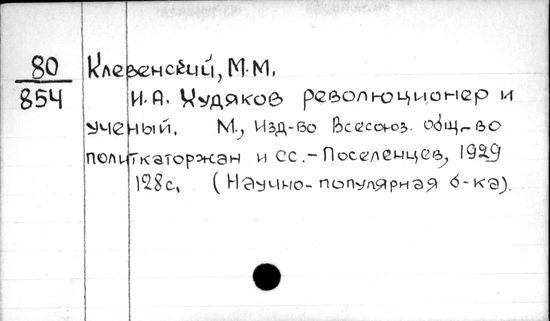 80
854
Клевенский, М.М.
И.А. Худяков революционер и
ученый. М., Изд-во Всесоюз. общ-во
политкаторжан и сс.-Поселенцев, 1929
128с. (Научно-популярная б-ка).